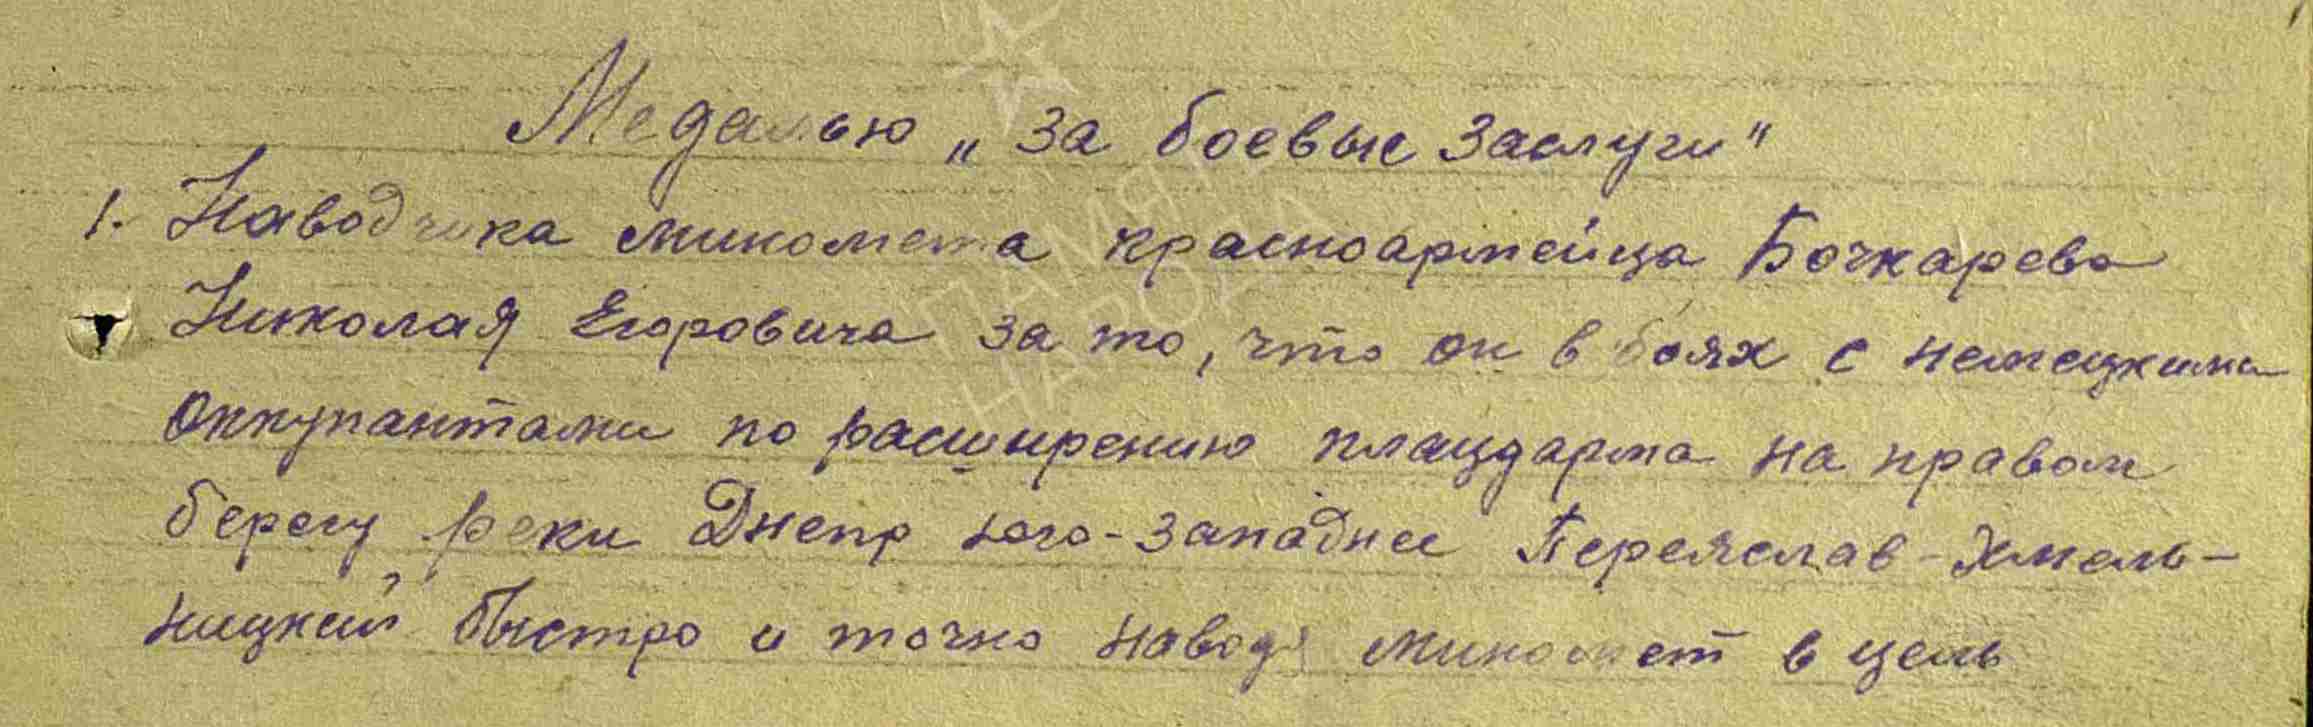 Медалью „За боевые заслуги"
1. Наводчика миномета красноармейца Бочкарева
Николая Егоровича за то, что он в боях с немецкими
оккупантами по расширению плацдарма на правом
берегу реки Днепр юго-западнее Переяслав-Хмель-
ницкий быстро и точно наводя миномет в цель
ПАМЯТЬ
НАРОДА